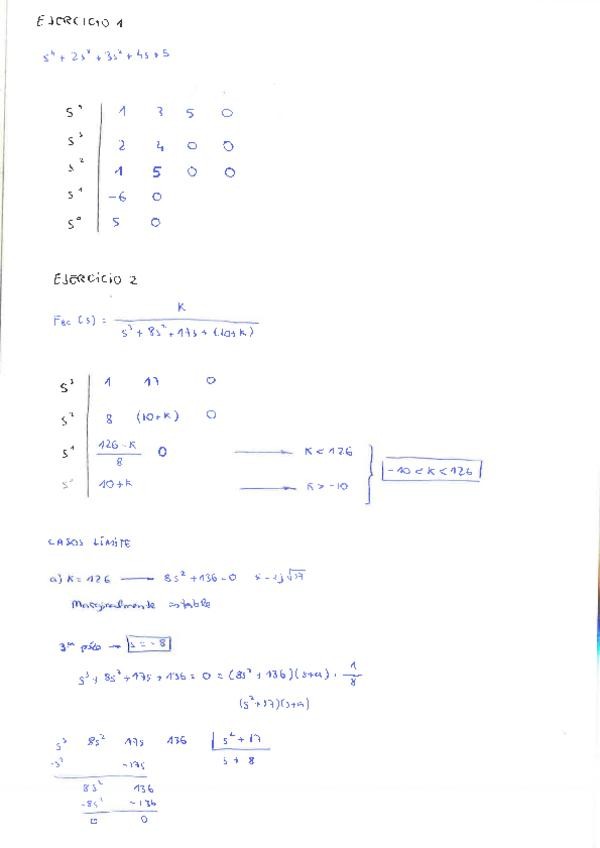 EJERCICIO 1
s⁴ + 2s³ + 3s² + 4s + 5
s⁴ | 1 3 5 0
s³ | 2 4 0 0
s² | 1 5 0 0
s¹ | -6 0
s⁰ | 5 0
EJERCICIO 2
F_BC (s) = K / (s³ + 8s² + 17s + (10+K))
s³ | 1 17 0
s² | 8 (10+K) 0
s¹ | (126-K)/8 0 → K < 126
s⁰ | 10+K → K > -10 } -10 < K < 126
CASOS LÍMITE
a) K = 126 — 8s² + 136 = 0
Marginalmente estable
3er polo → s = -8
s³ + 8s² + 17s + 136 = 0 = (8s² + 136)(s+a) · 1/8
(s² + 17)(s+a)
s³ 8s² 17s 136 | s² + 17
-s³ -17s s + 8
8s² 136
-8s² -136
0 0